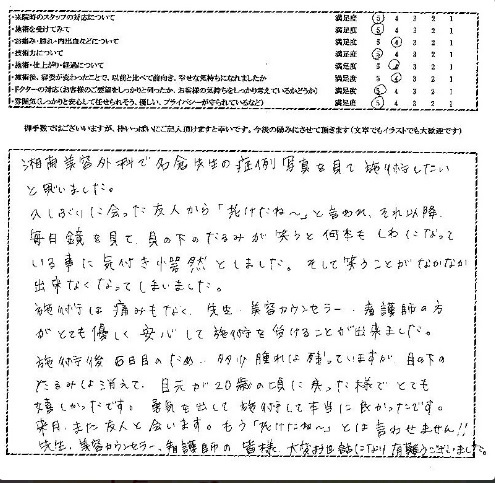 ・来院時のスタッフの対応について 満足度 5 4 3 2 1
・施術を受けてみて 満足度 5 4 3 2 1
・お痛み・腫れ・内出血などについて 満足度 5 4 3 2 1
・技術力について 満足度 5 4 3 2 1
・施術・仕上がり・経過について 満足度 5 4 3 2 1
・施術後、容姿が変わったことで、以前と比べて前向き、幸せな気持ちになれましたか 満足度 5 4 3 2 1
・ドクターの対応(お客様のご要望をしっかりと伺ったか、お客様の気持ちをしっかり考えているかどうか) 満足度 5 4 3 2 1
・雰囲気(しっかりと安心して任せられそう、優しい、プライバシーが守られているなど) 満足度 5 4 3 2 1
御手数ではございいますが、枠いっぱいにご記入頂けますと幸いです。今後の励みにさせて頂きます(文章でもイラストでも大歓迎です)
湘南美容外科で名倉先生の症例写真を見て施術したい
と思いました。
久しぶりに会った友人から「老けたね〜」と言われ、それ以降、
毎日鏡を見て、目の下のたるみが笑うと何本もしわになって
いる事に気付き愕然としました。そして笑うことがなかなか
出来なくなってしまいました。
施術は痛みもなく、先生・美容カウンセラー・看護師の方
がとても優しく安心して施術を受けることが出来ました。
施術後6日目のため、多少腫れは残っていますが、目の下の
たるみは消えて、目元が20歳の頃に戻った様でとても
嬉しかったです。勇気を出して施術して本当に良かったです。
来月、また友人と会います。もう「老けたね〜」とは言わせません!!
先生、美容カウンセラー、看護師の皆様、大変お世話になり有難うございました。